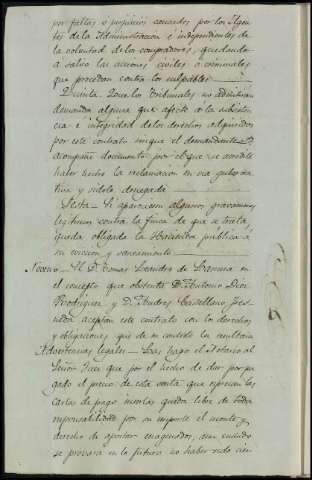 por faltas o perjuicios causados por los Agen-
tes de la Administración é independientes de
la voluntad de los compradores, quedando
a salvo las acciones civiles o criminales
que procedan contra los culpables
Quinta. Que los Tribunales no admitirán
demanda alguna que afecte a la subsisten-
cia e integridad de los derechos adquiridos
por este contrato sin que el demandante
acompañe documento por el que se acredite
haber hecho la reclamación en via guberna-
tiva y sídole denegada
Sexta. Si aparecieren algunos gravámenes
legítimos contra la finca de que se trata,
queda obligada la Hacienda pública á
su evicción y saneamiento
D. Tomas Leandro de en
el concepto que ostenta D. Antonio Diez
Rodriguez y D. Andres Castellano
aceptan este contrato con los derechos
y obligaciones que de su contesto les resultaren
Advertencias legales. Les hago el Notario al
Señor Juez que por el hecho de dar por pa-
gado el precio de esta venta que expresan las
cartas de pago insertas queda libre de toda
responsabilidad por su importe el monte y
derecho de aportar enagenados, aun cuando
se probara en lo futuro no haber sido cier-